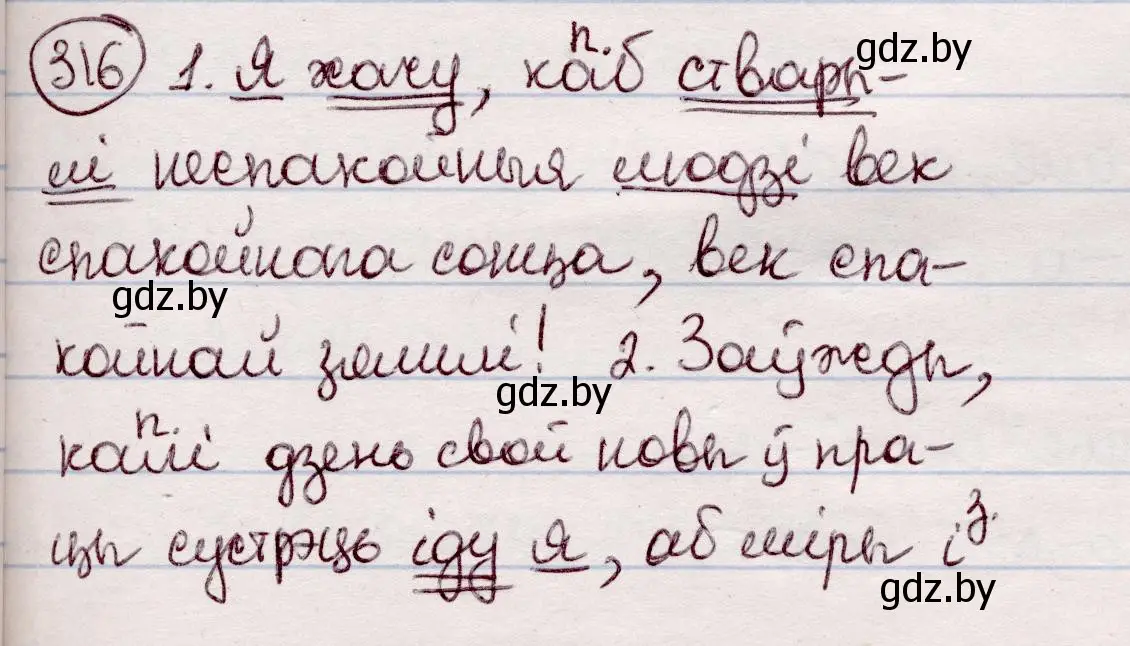 316 1. Я хачу, каб ствары-
п.
gdz.by
лі неспакойныя людзі век
спакойнага сонца, век спа-
gdz.by
койнай зямлі! 2. Заўжды,
gdz.by
п.
калі дзень свой новы ў пра-
цы сустрэць іду я, аб міры і
з.
gdz.by